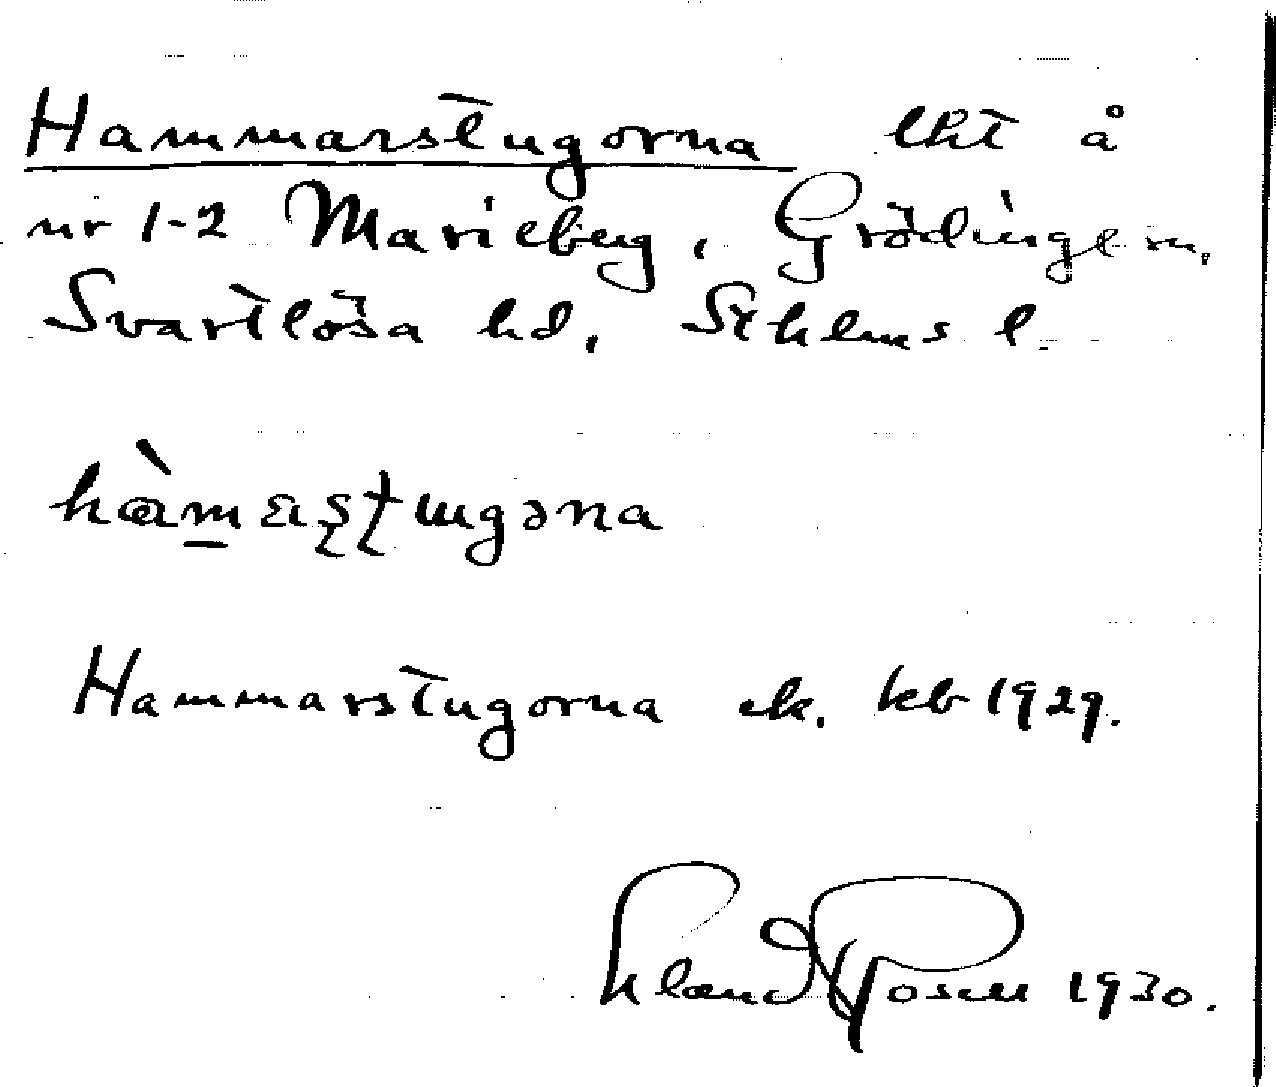 Hammarstugorna lht å
nr 1-2 Marieberg, Grödinge sn,
Svartlösa hd, Sthlms l.
hàmaştugəna
Hammarstugorna ek. kb 1929.
Erland Rosell 1930.